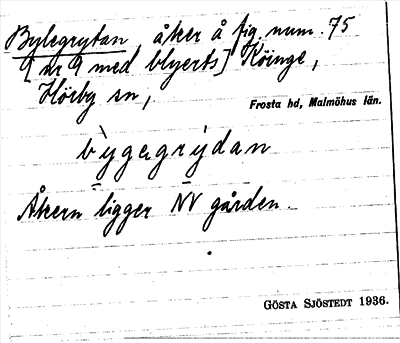 Bylegrytan åker å fig. num. 75
[nr 9 med blyerts] Köinge,
Hörby sn,
Frosta hd, Malmöhus län.
Åkern ligger NV gården.
GÖSTA SJÖSTEDT 1936.